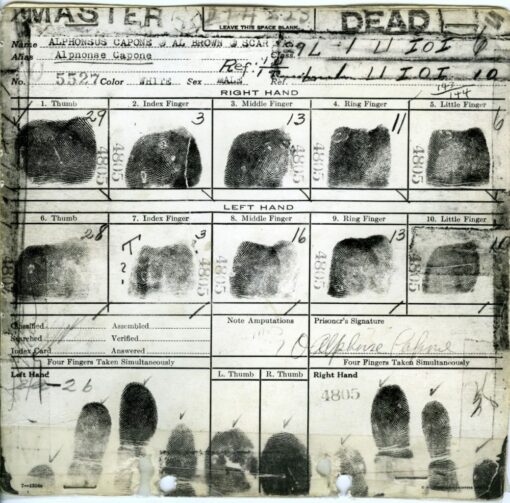 MASTER DEAD
LEAVE THIS SPACE BLANK
Name ALPHONSUS CAPONE & AL BROWN & SCAR Class. 9 L 1 U I O I 6
Alias Alphonse Capone Ref: T 1 U I O I 10
No. 5527 Color WHITE Sex MALE Ref.
RIGHT HAND
1. Thumb 2. Index Finger 3. Middle Finger 4. Ring Finger 5. Little Finger
29 3 13 11 6
4805 4805 4805 4805
LEFT HAND
6. Thumb 7. Index Finger 8. Middle Finger 9. Ring Finger 10. Little Finger
28 T ? 3 16 13 10
4805 4805 4805 4805
Classified Assembled Note Amputations Prisoner's Signature
Searched Verified
Index Card Answered Alphonse Capone
Four Fingers Taken Simultaneously Four Fingers Taken Simultaneously
Left Hand L. Thumb R. Thumb Right Hand
26
4805